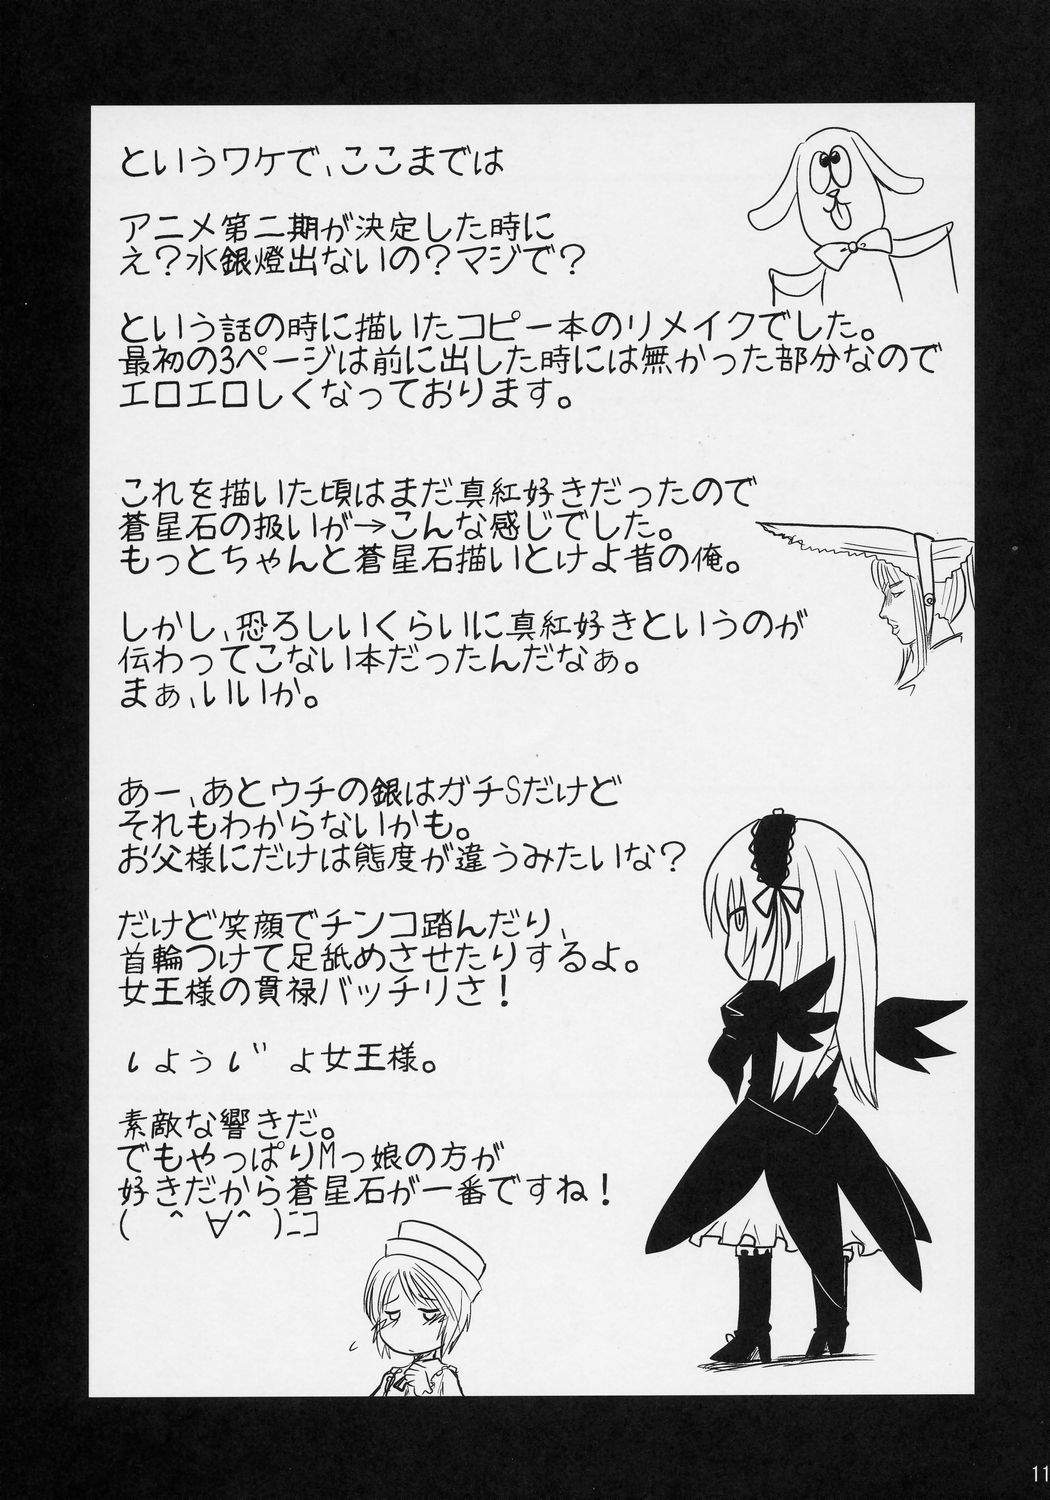 というワケで、ここまでは
アニメ第二期が決定した時に
え?水銀燈出ないの?マジで?
という話の時に描いたコピー本のリメイクでした。
最初の3ページは前に出した時には無かった部分なので
エロエロしくなっております。
これを描いた頃はまだ真紅好きだったので
蒼星石の扱いが→こんな感じでした。
もっとちゃんと蒼星石描いとけよ昔の俺。
しかし、恐ろしいくらいに真紅好きというのが
伝わってこない本だったんだなぁ。
まぁ、いいか。
あー、あとウチの銀はガチSだけど
それもわからないかも。
お父様にだけは態度が違うみたいな?
だけど笑顔でチンコ踏んだり、
首輪つけて足舐めさせたりするよ。
女王様の貫禄バッチリさ!
しょうじょ女王様。
素敵な響きだ。
でもやっぱりMっ娘の方が
好きだから蒼星石が一番ですね!
( ＾∀＾)ﾆｺ
11